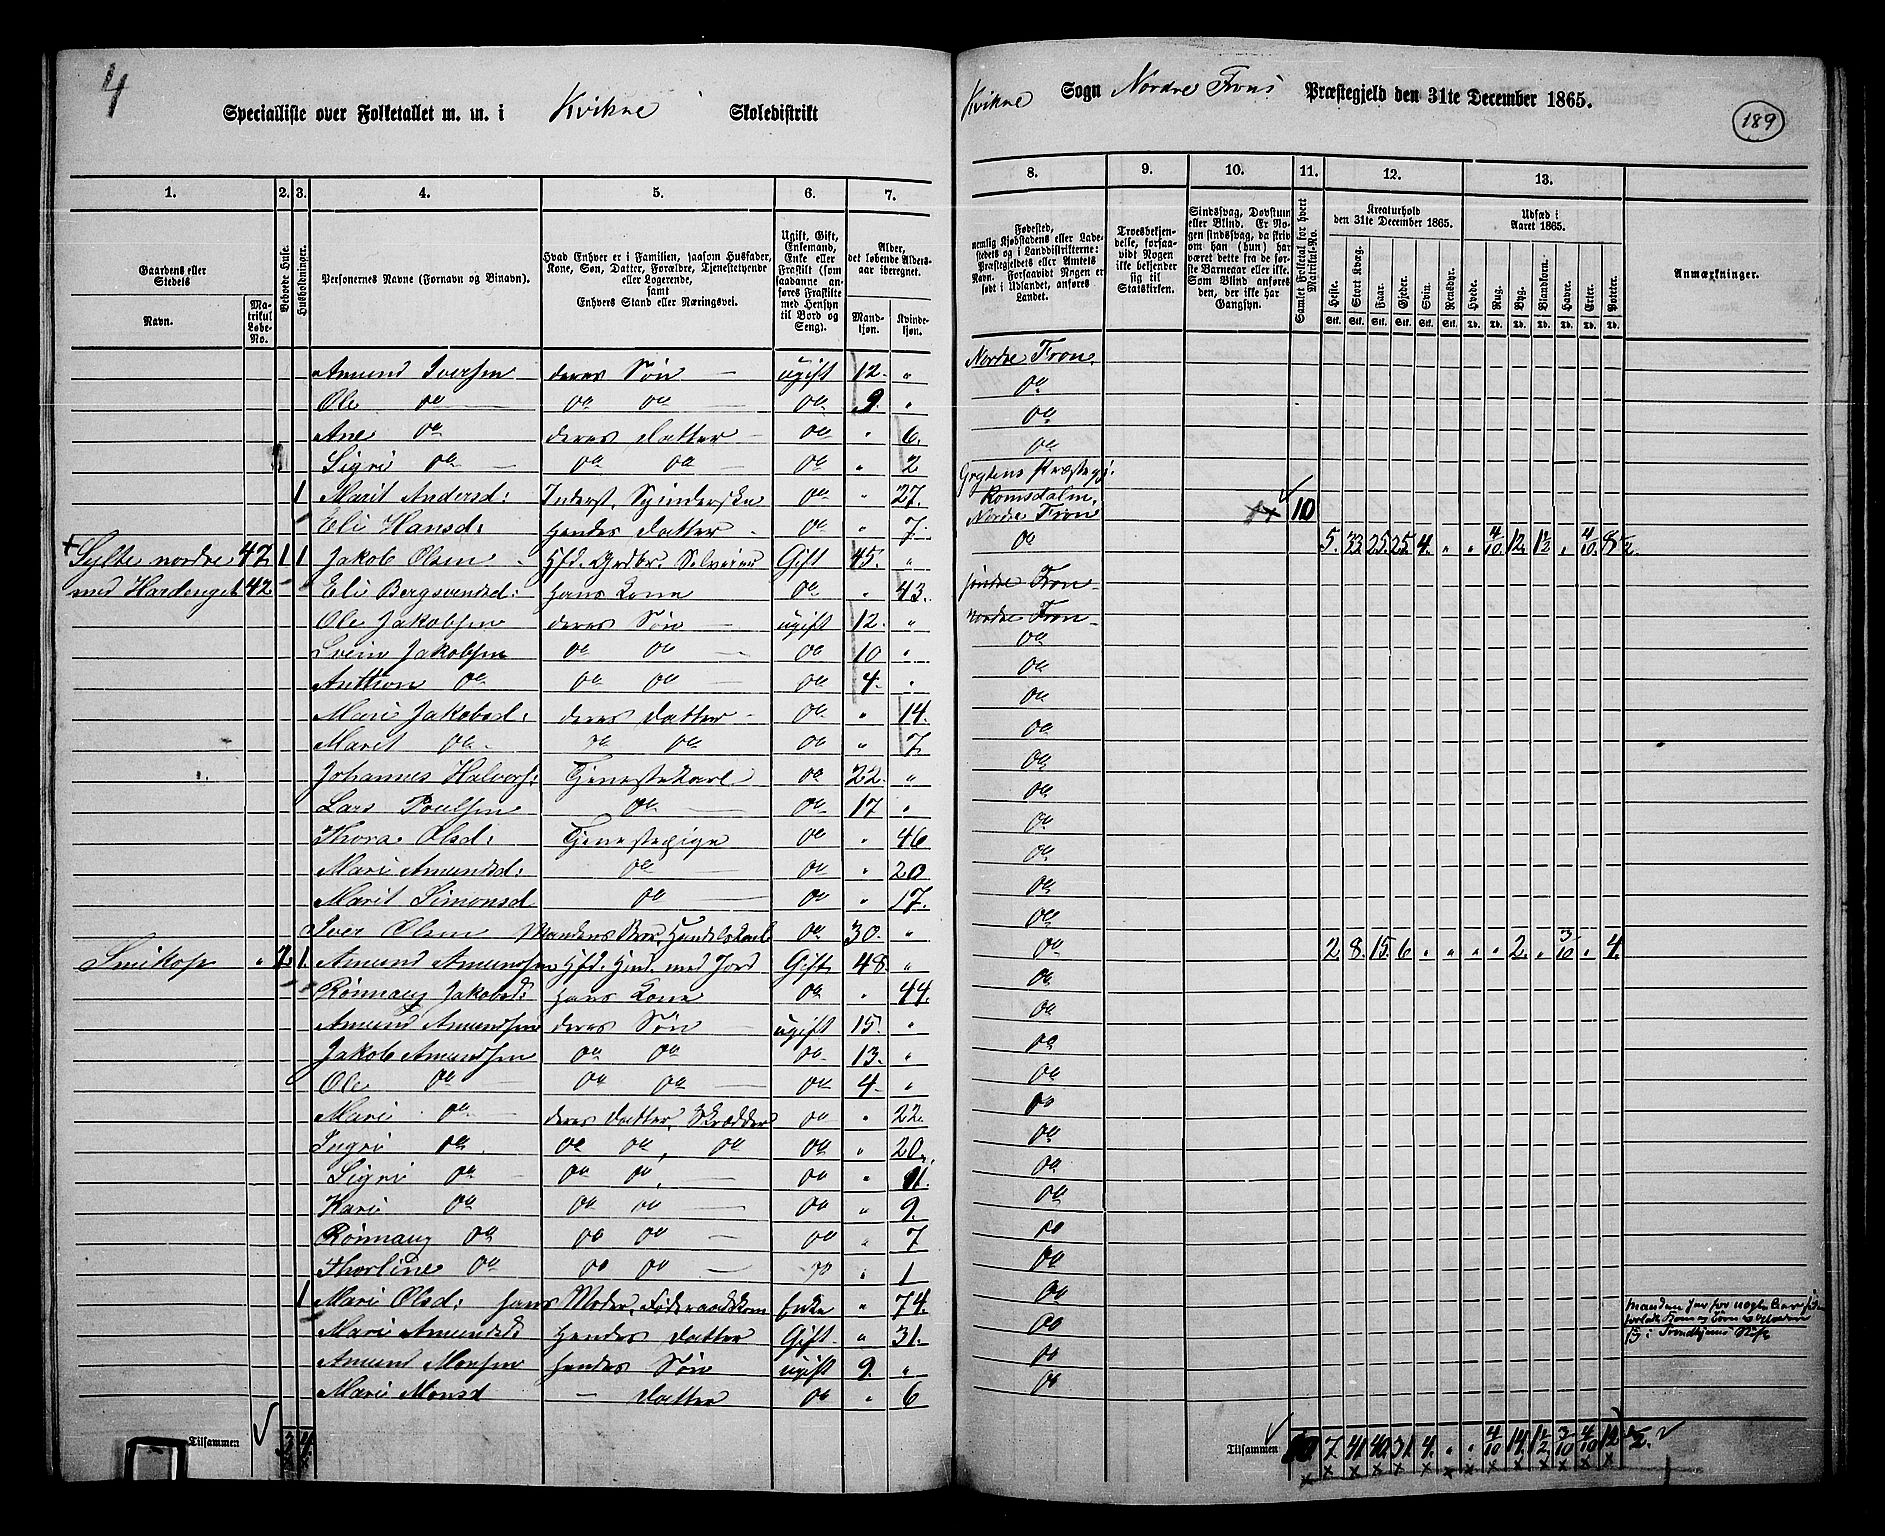 4
Specialliste over Folketallet m. m. i Kvikne Skoledistrikt
Kvikne Sogn Nordre Frons Præstegjeld den 31te December 1865.
189
1. 2. 3. 4. 5. 6. 7.
8. 9. 10. 11. 12. 13.
Gaardens eller Stedets
Navn.
Matrikul Løbe-No.
Beboede Huse.
Husholdninger.
Personernes Navne (Fornavn og Binavn).
Hvad Enhver er i Familien, saasom Husfader, Kone, Søn, Datter, Forældre, Tjenestetyende eller Logerende, samt Enhvers Stand eller Næringsvei.
Ugift, Gift, Enkemand, Enke eller Fraskilt (som saadanne anføres Fraskilte med Hensyn til Bord og Seng).
Alder, det løbende Aldersaar iberegnet.
Mandkjøn.
Kvindekjøn.
Fødested, nemlig Kjøbstadens eller Ladestedets og i Landdistrikterne: Præstegjeldets eller Amtets Navn. Forsaavidt Nogen er født i Udlandet, anføres Landet.
Troesbekjendelse, forsaavidt Nogen ikke bekjender sig til Statskirken.
Sindssvag, Døvstum eller Blind. Er Nogen sindssvag, da skrives om han (hun) har været dette fra de første Barneaar eller ikke. Som Blind anføres den, der ikke har Gangsyn.
Samlet Folketal for hvert Matrikul-No.
Kreaturhold den 31te December 1865.
Heste. Stort Kvæg. Faar. Gjeder. Svin. Rensdyr.
Udsæd i Aaret 1865.
Hvede. Rug. Byg. Blandkorn. Havre. Erter. Poteter.
Anmærkninger.
Amund Iversen deres Søn ugift 12. " Nordre Fron.
Ole do do do do 9. " do
Ane do deres Datter do " 6. do
Sigri do do do do " 2 do
1 Marit Andersd: Inderst, Spinderske do " 27. Grytens Præstegj: Romsdalen.
Eli Hansd: hendes Datter do " 7. Nordre Fron 10
Sylte nordre 47 1 1 Jakob Olsen Hfd. Grdbr. Selveier Gift 45. " do 5. 33. 25. 25. 4. " " 4/10 12. 1 1/2 " 4/10 8 1/2.
med Hardenget 42 Eli Bergsvendsd: hans Kone do " 43. søndre Fron
Ole Jakobsen deres Søn ugift 12. " nordre Fron
Svein Jakobsen do do do 10 " do
Anthon do do do do 4. " do
Mari Jakobsd: deres Datter do " 14. do
Marit do do do do " 7. do
Johannes Halvors: Tjenestekarl do 22. " do
Lars Poulsen do do 17 " do
Thora Olsd: Tjenestepige do " 46 do
Mari Amundsd: do do " 20 do
Marit Simonsd do do " 17. do
Iver Olsen Mandens Bror, Handelskarl do 30. " do
" 2. 1. Amund Amundsen Hfd. Husm. med Jord Gift 48. " do 2. 8. 15. 6 " " " " 2. " 3/10 " 4.
Rønnaug Jakobsd: hans Kone do " 44. do
Amund Amundsen deres Søn ugift 15. " do
Jakob Amundsen do do do 13. " do
Ole do do do do 4. " do
Mari do deres Datter, Skrædder do " 22. do
Ingri do do do, do do " 20. do
Sigri do do do, do " 11. do
Kari do do do do " 9. do
Rønnaug do do do do " 7 do
Thorline do do do do " 1 do
1 Mari Olsd: hans Moder, Føderaadskone Enke " 74. do
Mari Amundsd: hendes Datter Gift " 31. do
Amund Monsen hendes Søn ugift 9. " do
Mari Monsd — Datter do " 6 do
Manden har for nogle Aar siden forladt Kone og Børn
i Trondhjems Stift
Tilsammen 3 4
Tilsammen 10 7. 41 40. 31. 4. " " 4/10 14. 1 1/2 3/10 4/10 12 1/2.